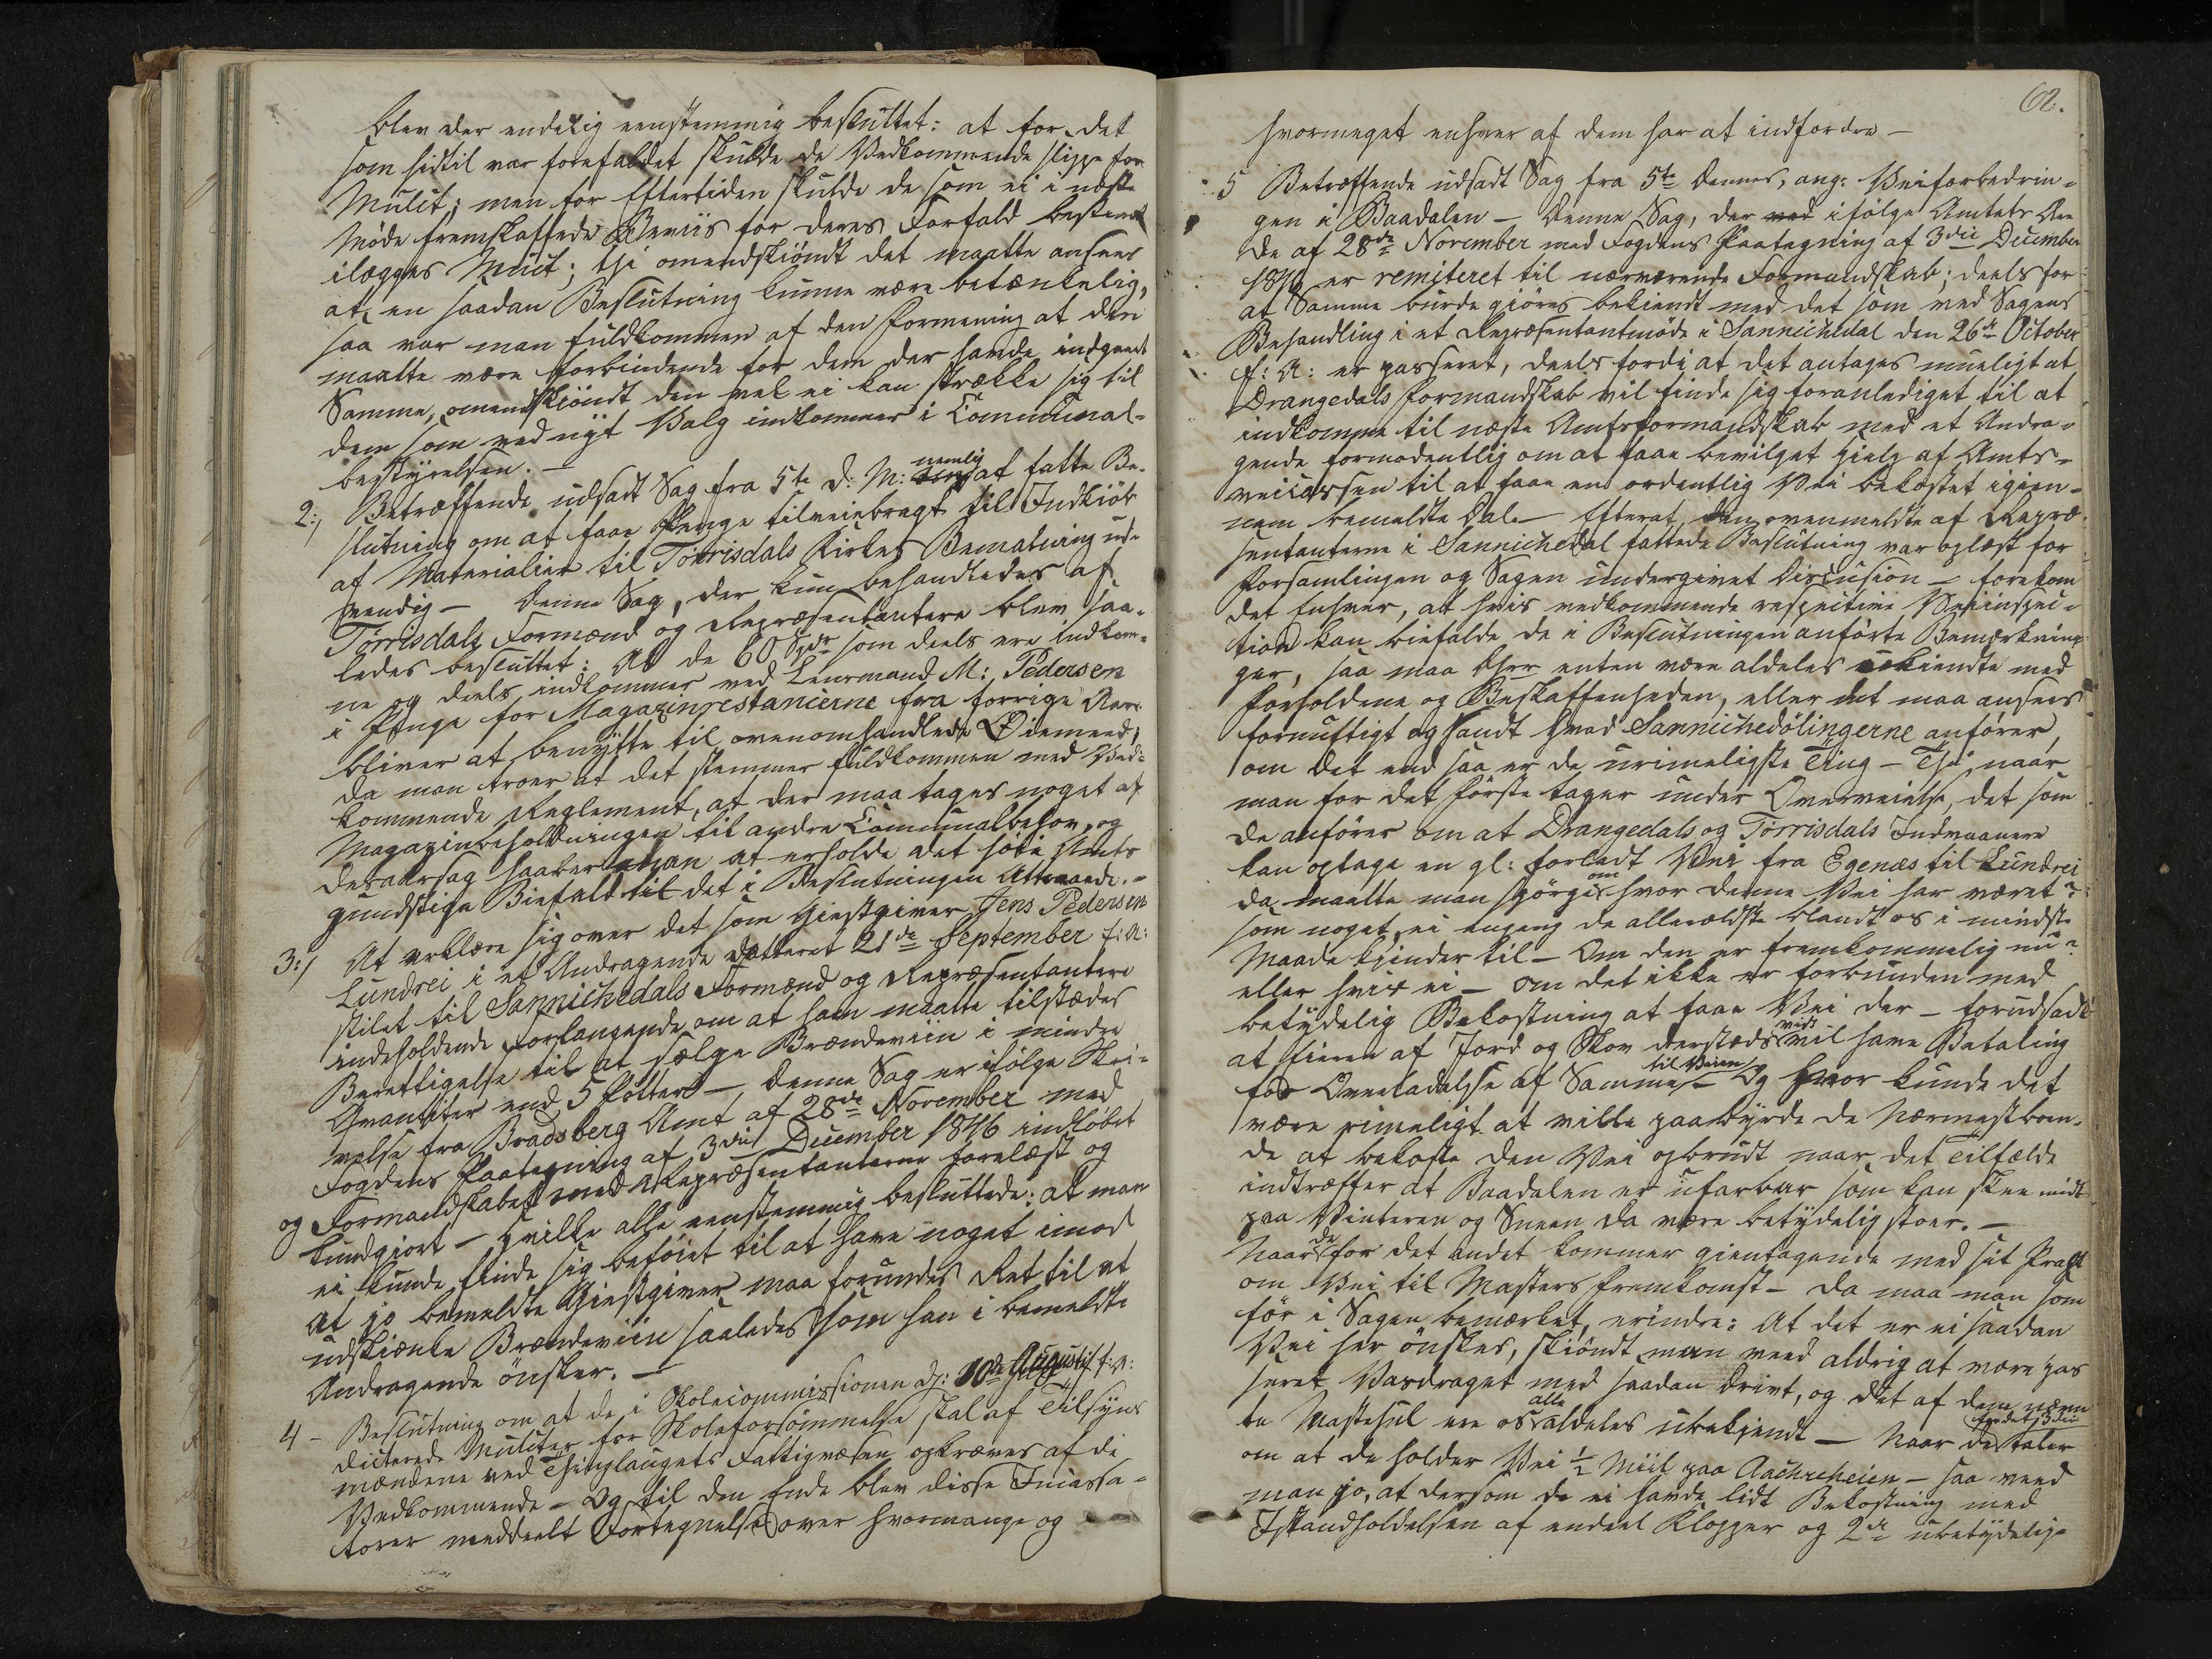 blev der endelig eenstemmig besluttet: at for det
som hidtil var forefaldet skulde de Vedkommende slippe for
Mulct; men for Eftertiden skulde de som ei i næste
Møde fremskaffede Beviis for deres Forfald bestemt
ilægges Mulct; thi omendskiöndt det maatte ansees
at en saadan Beslutning kunne være betænkelig,
saa var man fuldkommen af den Formening at den
maatte være forbindende for dem der havde indgaaet
Samme, omendskiöndt den vel ei kan strække sig til
dem som ved nyt Valg indkommer i Communal-
bestyrelsen. —
2:, Betræffende udsadt Sag fra 5te d: M: nemlig at fatte Be-
slutning om at faae Penge tilveiebragt til Indkiöb
af Materialier til Törrisdals Kirkes Bemaling ud-
vendig — Denne Sag, der kun behandledes af
Törrisdals Formænd og Repræsentantere blev saa-
ledes besluttet: At de 60 Spdr som deels ere indkom-
ne og deels indkommer ved Leensmand M: Pedersen
i Penge for Magazinrestancierne fra forrige Aar
bliver at benytte til ovenomhandlede Øiemeed;
da man troer at det stemmer fuldkommen med Ved-
kommende Reglement, at der maa tages noget af
Magazinbeholdningen til andre Communalbehov, og
desaarsag haaber man at erholde det höie Amts
gundstige Biefald til det i Beslutningen Attraaede. -
3:, At erklære sig over det som Giestgiver Jens Pedersen
Lundrei i et Andragende datteret 21de September f: A:
stilet til Sannichedals Formænd og Repræsentantere
indeholdende Forlangende om at ham maatte tilstædes
Berettigelse til at sælge Brændeviin i mindre
Qvantiter end 5 Potter — Denne Sag er ifölge Skri-
velse fra Bradsberg Amt af 28de November med
Fogdens Paategning af 3die December 1846 indlöbet
og Formandskabet med Repræsentanterne forelæst og
kundgiort — hvilke alle eenstemmig besluttede: at man
ei kunde finde sig beföiet til at have noget imod
at jo bemeldte Giestgiver maa forundes Ret til at
udskienke Brændeviin saaledes som han i bemeldte
Andragende önsker. —
4 - Beslutning om at de i Skolecommissionen d: 10de August f: A:
dicterede Mulcter for Skoleforsömmelse skal af Tilsyns
mændene ved Thinglaugets Fattigvæsen opkræves af de
Vedkommende — Og til den Ende blev disse Incassa-
torer meddeelt Fortegnelse over hvormange og
62.
hvormeget enhver af dem har at indfordre —
5 Betræffende udsadt Sag fra 5te Dennes, ang: Veiforbedrin-
gen i Baadalen — Denne Sag, der ved ifölge Amtets
de af 28de November med Fogdens Paategning af 3die December
1846 er remiteret til nærværende Formandskab; deels for
at Samme burde giöres bekiendt med det som ved Sagens
Behandling i et Repræsentantmöde i Sannichedal den 26de October
f: A: er passeret, deels fordi at det antages mueligt at
Drangedals Formandskab vil finde sig foranlediget til at
indkomme til næste Amtsformandskab med et Andra-
gende formodentlig om at faae bevilget Hielp af Amts-
veicassen til at faae en ordentlig Vei bekostet igien-
nem bemeldte Dal. — Efterat den ovenmeldte af Repræ-
sentanterne i Sannichedal fattede Beslutning var oplæst for
Forsamlingen og Sagen undergivet Discusion — forekom
det Enhver, at hvis vedkommende respective Veiinspec-
tion kan biefalde de i Beslutningen anförte Bemærknin-
ger, saa maa enten være aldeles ubekiendte med
Forholdene og Beskaffenheden, eller det maa ansees
fornuftigt og sandt hvad Sannichedölingerne anförer,
om det end saa er de urimeligste Ting — Thi naar
man for det förste tager under Overveielse, det som
de anförer om at Drangedals og Törrisdals Indvaanere
kan optage en gl: forladt Vei fra Egenæs til Lundrei
da maatte man spörge om hvor denne Vei har været?
som noget ei engang de allerældste blandt os i mindste
Maade kiender til — Om den er fremkommelig nu?
eller hvis ei — om det ikke er forbunden med
betydelig Bekostning at faae Vei der — forudsadt
at Eieren af Jord og Skov dersteds vist vil have Bataling
for Overladelse af Samme til Veien — Og hvor kunde det
være rimeligt at ville paabyrde de Nærmestboen-
de at bekoste den Vei opbrudt naar det Tilfælde
indtræffer at Baadalen er ufarbar som kan skee midt
paa Vinteren og Sneen da være betydelig stoer. —
Naar de for det andet kommer gientagende med sit Prat
om Vei til Masters Fremkomst — da maa man som
för i Sagen bemærket, erindre: At det er ei saadan
Vei her önskes, skiöndt man veed aldrig at være pas
seret Vasdraget med saadan Drivt, og det af dem nævn
te Mastehul ere os alle aldeles ubekjendt — Naar de for det 3die taler
om at de holder Vei ½ Miil paa Aachreheien — saa veed
man jo, at dersom de ei havde lidt Bekostning med
Istandholdelsen af endeel Klopper og 2de ubetydelige